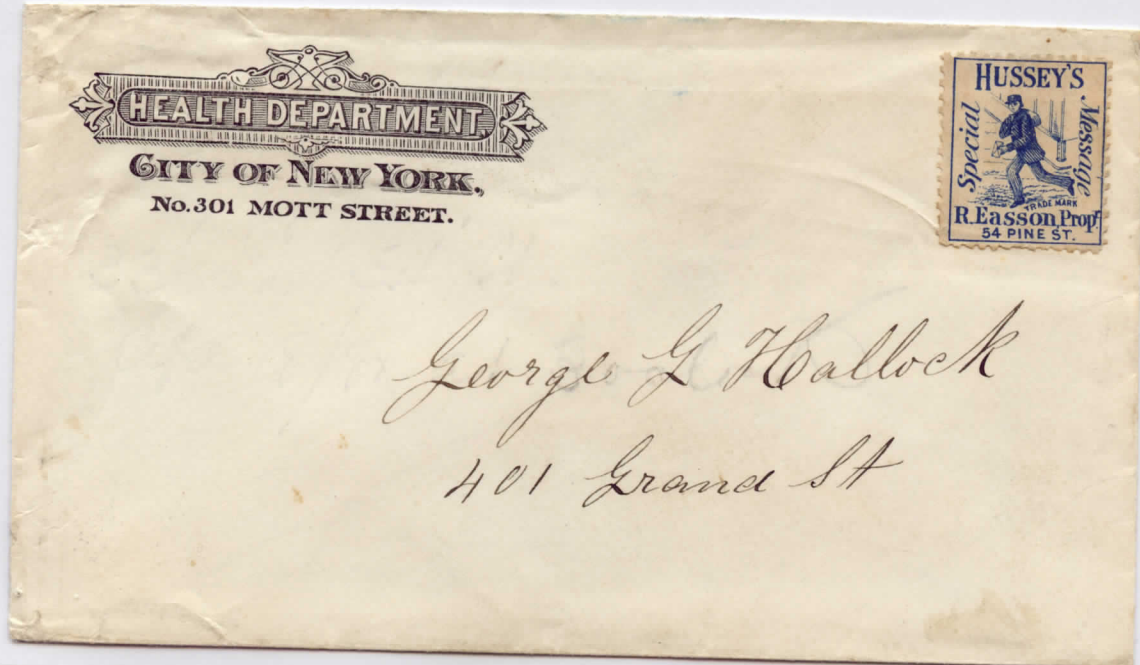 HEALTH DEPARTMENT,
CITY OF NEW YORK,
No. 301 MOTT STREET.
HUSSEY'S
Special
Message
TRADE MARK
R. Easson, Propr.
54 PINE ST.
George G Hallock
401 Grand St